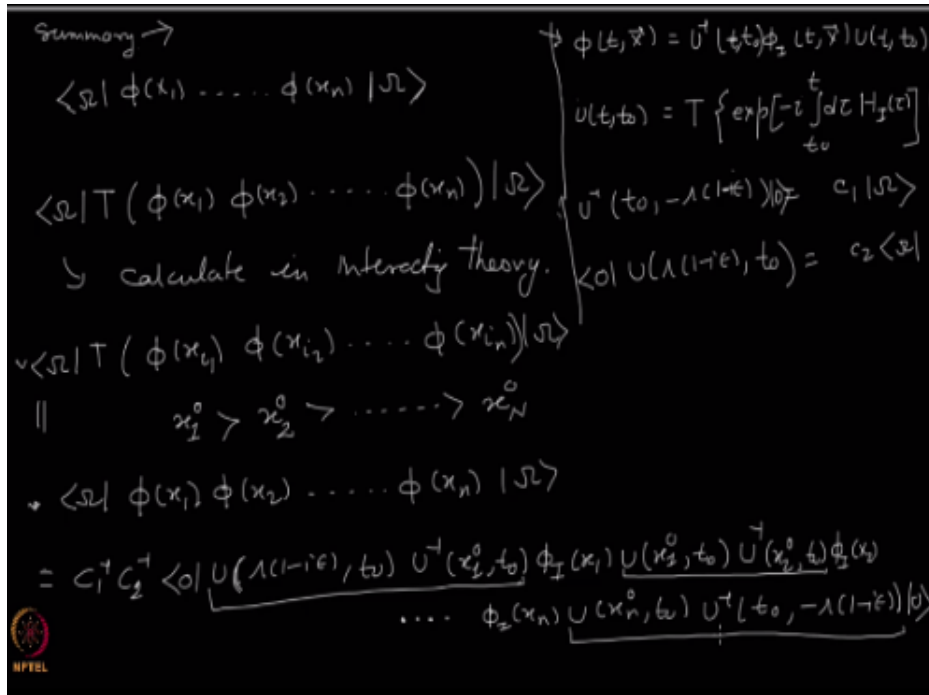 Summary →
<Ω| φ(x₁) ..... φ(xₙ) |Ω>
<Ω| T ( φ(x₁) φ(x₂) ...... φ(xₙ) ) |Ω>
↳ calculate in Interactig theory.
<Ω| T ( φ(x_{i₁}) φ(x_{i₂}) ..... φ(x_{iₙ}) ) |Ω>
|| x₁⁰ > x₂⁰ > ...... > x_N⁰
• <Ω| φ(x₁) φ(x₂) ...... φ(xₙ) |Ω>
= C₁⁻¹ C₂⁻¹ <0| U(Λ(1-iε), t₀) U⁻¹(x₁⁰, t₀) φ_I(x₁) U(x₁⁰, t₀) U⁻¹(x₂⁰, t₀) φ_I(x₂)
.... φ_I(xₙ) U(xₙ⁰, t₀) U⁻¹(t₀, -Λ(1-iε)) |0>
φ(t, x⃗) = U⁻¹(t, t₀) φ_I(t, x⃗) U(t, t₀)
U(t, t₀) = T { exp[-i ∫_{t₀}^{t} dτ H_I(τ)]
U⁻¹(t₀, -Λ(1-iε)) |0> = C₁ |Ω>
<0| U(Λ(1-iε), t₀) = C₂ <Ω|
NPTEL